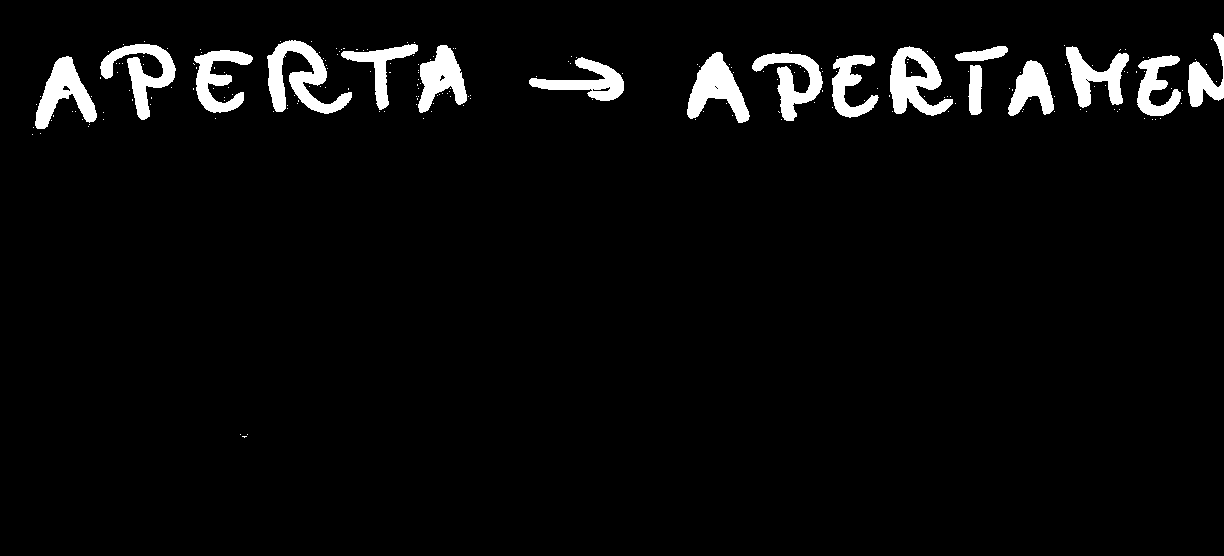 APERTA → APERTAMEN